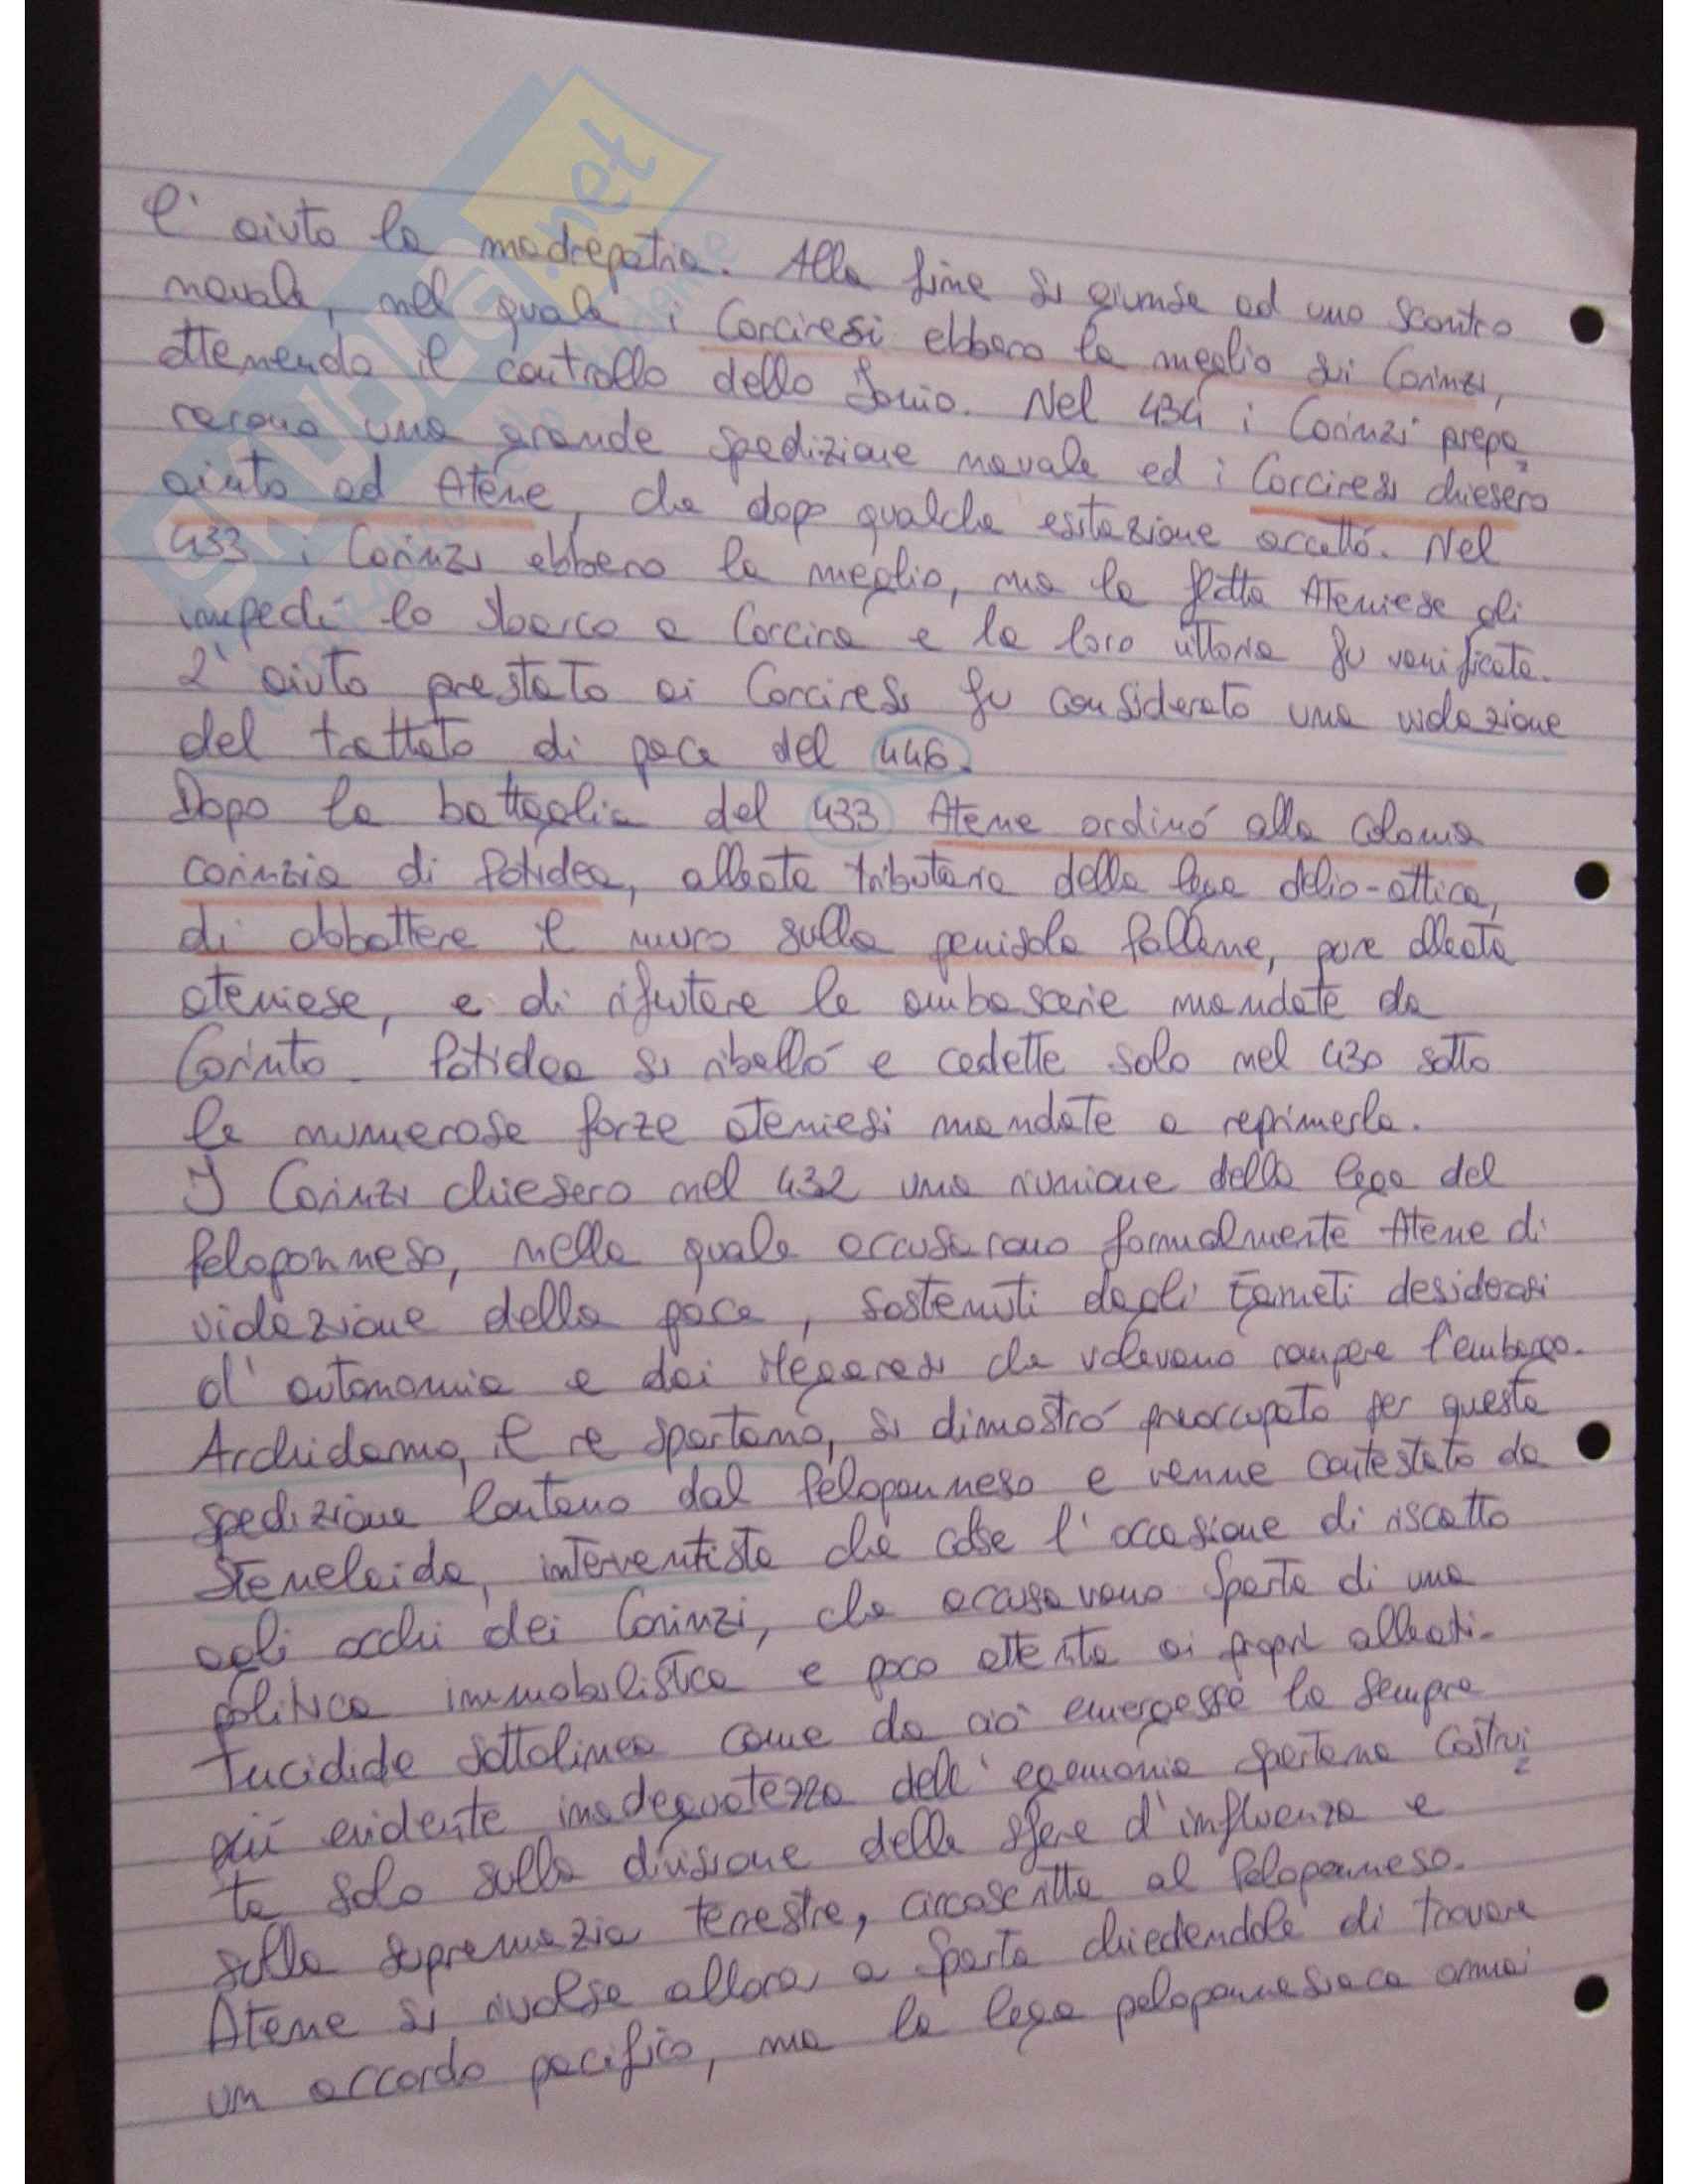 l'aiuto la madrepatria. Alla fine si giunse ad uno scontro
navale, nel quale i Corciresi ebbero la meglio sui Corinzi,
ottenendo il controllo dello Ionio. Nel 434 i Corinzi prepa
rarono una grande spedizione navale ed i Corciresi chiesero
aiuto ad Atene, che dopo qualche esitazione accettó. Nel
433 i Corinzi ebbero la meglio, ma la flotta Ateniese gli
impedí lo sbarco a Corcira e la loro vittoria fu vanificata.
L'aiuto prestato ai Corciresi fu considerato una violazione
del trattato di pace del 446.
Dopo la battaglia del 433 Atene ordinó alla colonia
corinzia di Potidea, alleata tributaria della lega delio-attica,
di abbattere il muro sulla penisola Pallene, pure alleata
ateniese, e di rifiutare le ambascerie mandate da
Corinto. Potidea si ribelló e cedette solo nel 430 sotto
le numerose forze ateniesi mandate a reprimerla.
I Corinzi chiesero nel 432 una riunione della lega del
Peloponneso, nella quale accusarono formalmente Atene di
violazione della pace, sostenuti dagli Egineti desiderosi
d'autonomia e dai Megaresi che volevano rompere l'embargo.
Archidamo, il re spartano, si dimostró preoccupato per questa
spedizione lontano dal Peloponneso e venne contestato da
Stenelaida, interventista che colse l'occasione di riscatto
agli occhi dei Corinzi, che accusavano Sparta di una
politica immobilistica e poco attenta ai propri alleati.
Tucidide sottolinea come da ció emergesse la sempre
piú evidente inadeguatezza dell'egemonia spartana costrui
ta solo sulla divisione delle sfere d'influenza e
sulla supremazia terrestre, circoscritta al Peloponneso.
Atene si rivolse allora a Sparta chiedendole di trovare
un accordo pacifico, ma la lega peloponnesiaca ormai
SKUOLA.net